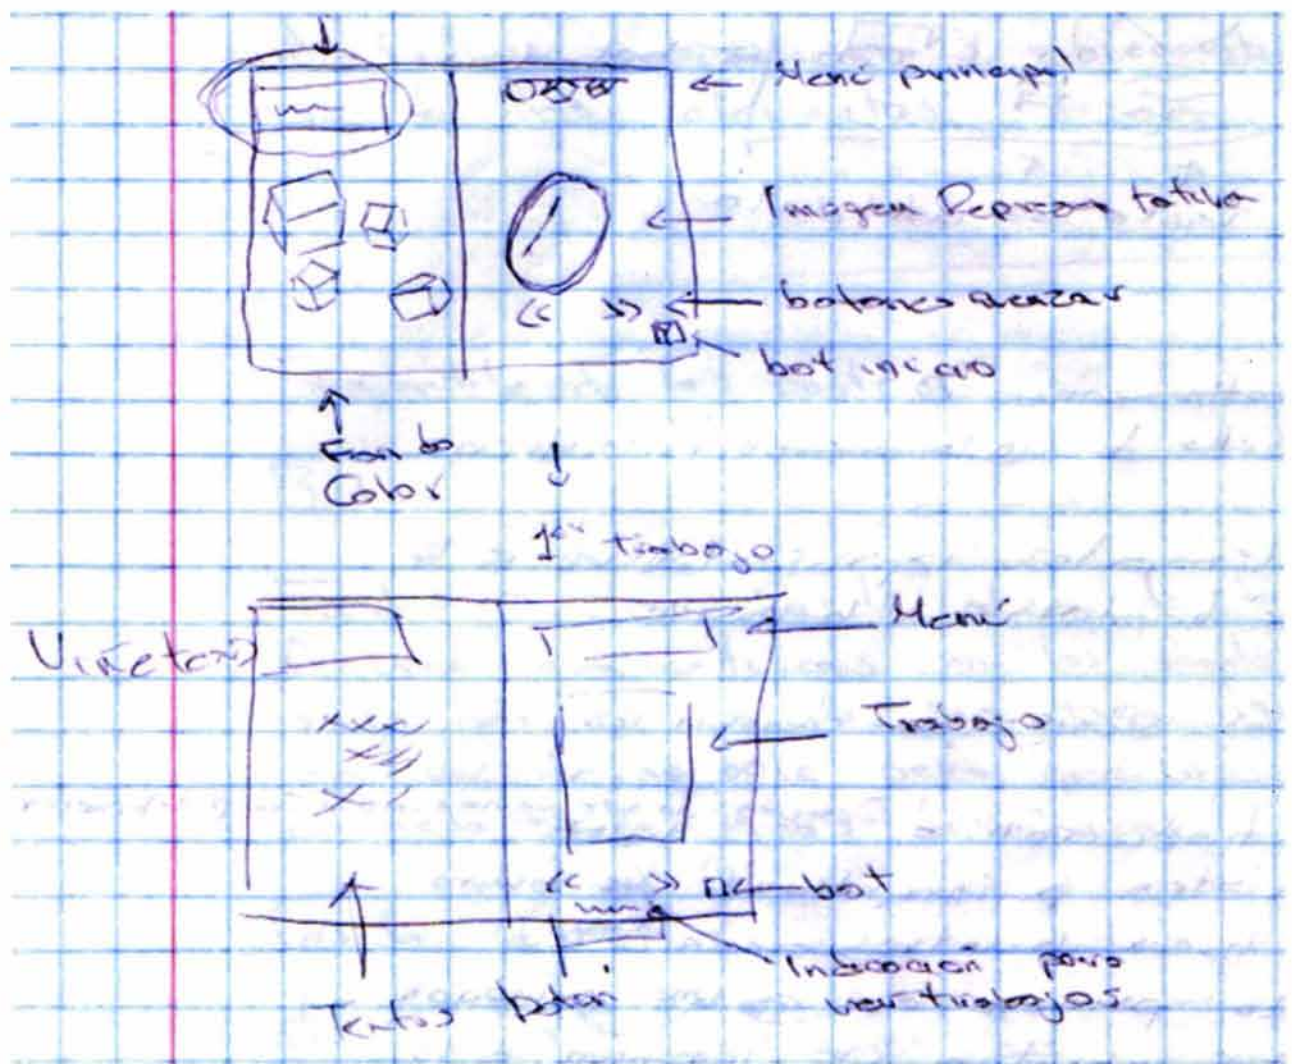 Menú principal
Imagen Representativa
botones avanzar
bot inicio
Fondo
Color
1er trabajo
Viñetas
Menú
Trabajo
bot
Indicación para
ver trabajos
Textos
botón